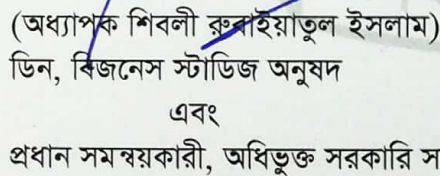 (অধ্যাপক শিবলী রুবাইয়াতুল ইসলাম)
ডিন, বিজনেস স্টাডিজ অনুষদ
এবং
প্রধান সমন্বয়কারী, অধিভুক্ত সরকারি স